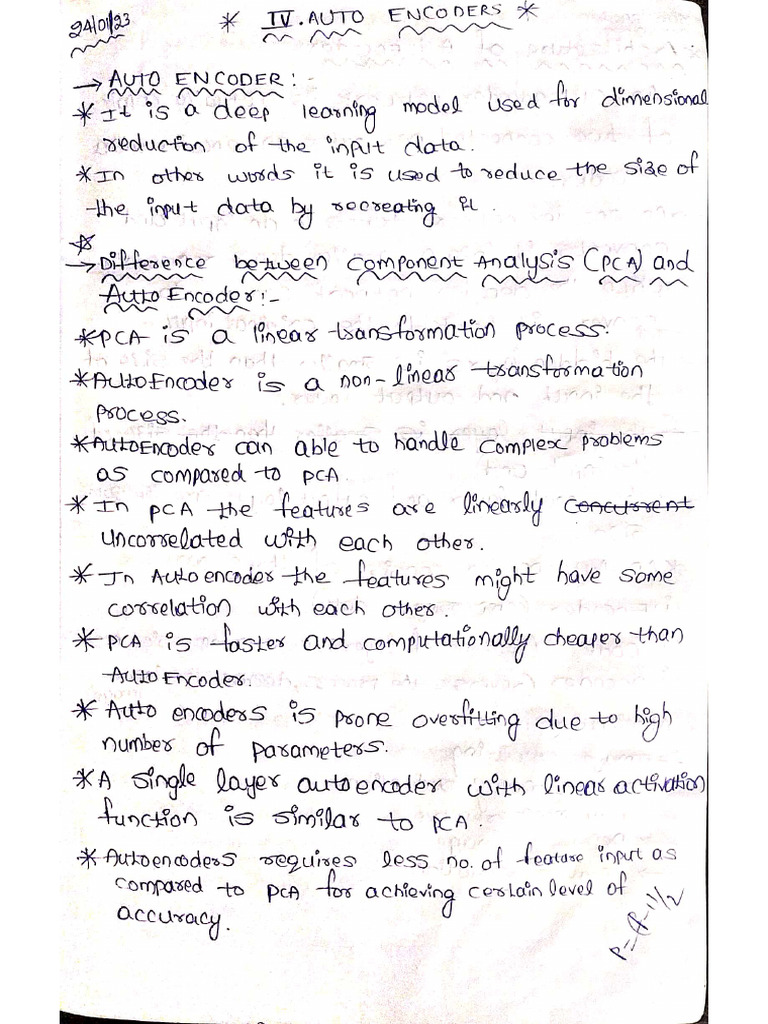 24/01/23
* IV. AUTO ENCODERS *
→ AUTO ENCODER:-
* It is a deep learning model used for dimensional
reduction of the input data.
* In other words it is used to reduce the size of
the input data by recreating it.
→ Difference between component Analysis (PCA) and
Auto Encoder:-
* PCA is a linear transformation process.
* AutoEncoder is a non-linear transformation
process.
* AutoEncoder can able to handle complex problems
as compared to PCA.
* In PCA the features are linearly concurrent
uncorrelated with each other.
* In Auto encoder the features might have some
correlation with each other.
* PCA is faster and computationally cheaper than
AutoEncoder.
* Auto encoders is prone overfitting due to high
number of parameters.
* A single layer autoencoder with linear activation
function is similar to PCA.
* Autoencoders requires less no. of feature input as
compared to PCA for achieving certain level of
accuracy.